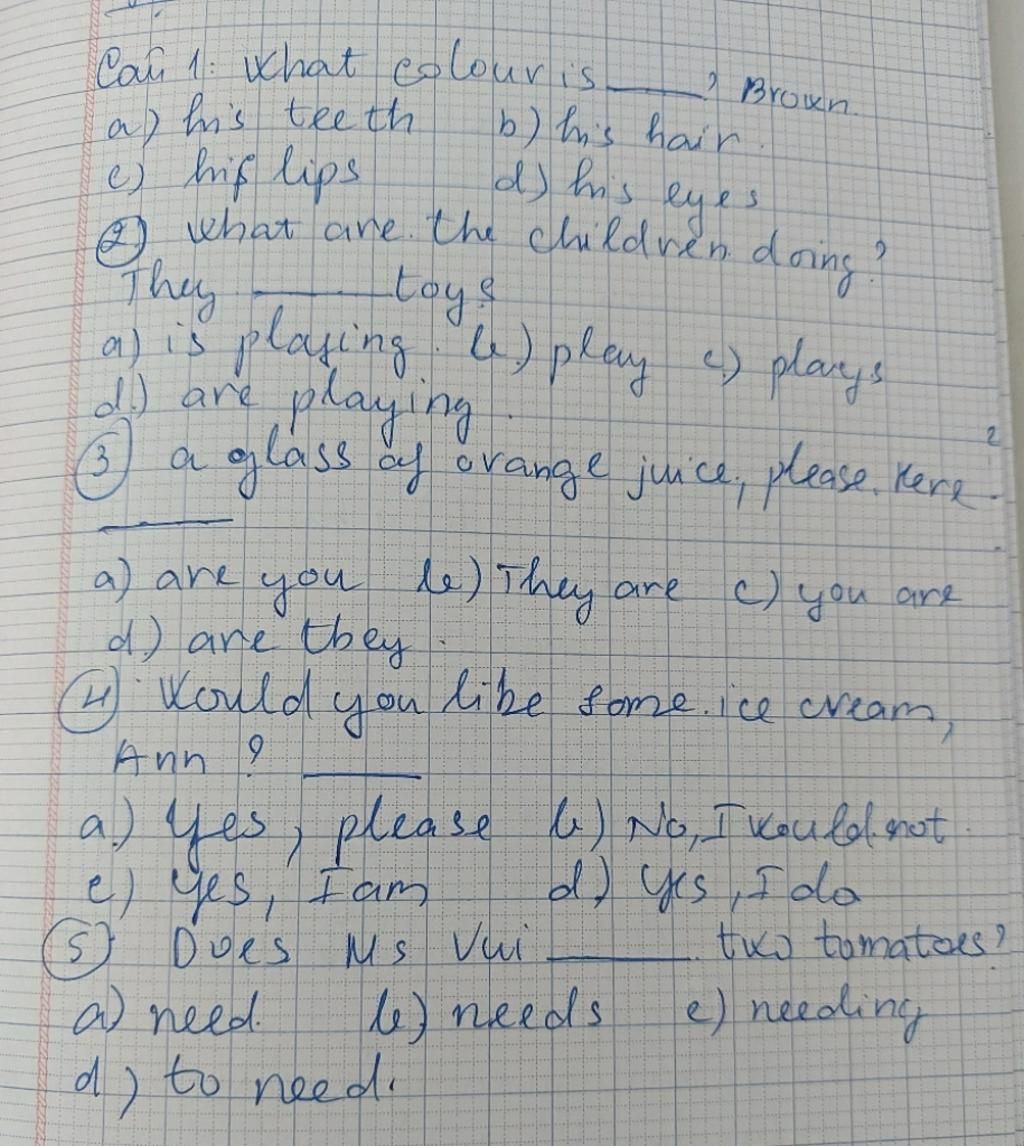 Câu 1: What colour is ____? Brown.
a) his teeth b) his hair.
c) his lips d) his eyes
② What are the children doing?
They ____ toys
a) is playing. b) play c) plays
d) are playing.
③ a glass of orange juice, please. Here
____
a) are you b) They are c) you are
d) are they.
④ Would you like some ice cream,
Ann? ____
a) Yes, please b) No, I would not.
c) Yes, I am d) Yes, I do
⑤ Does Ms Vui ____ two tomatoes?
a) need. b) needs c) needing
d) to need.